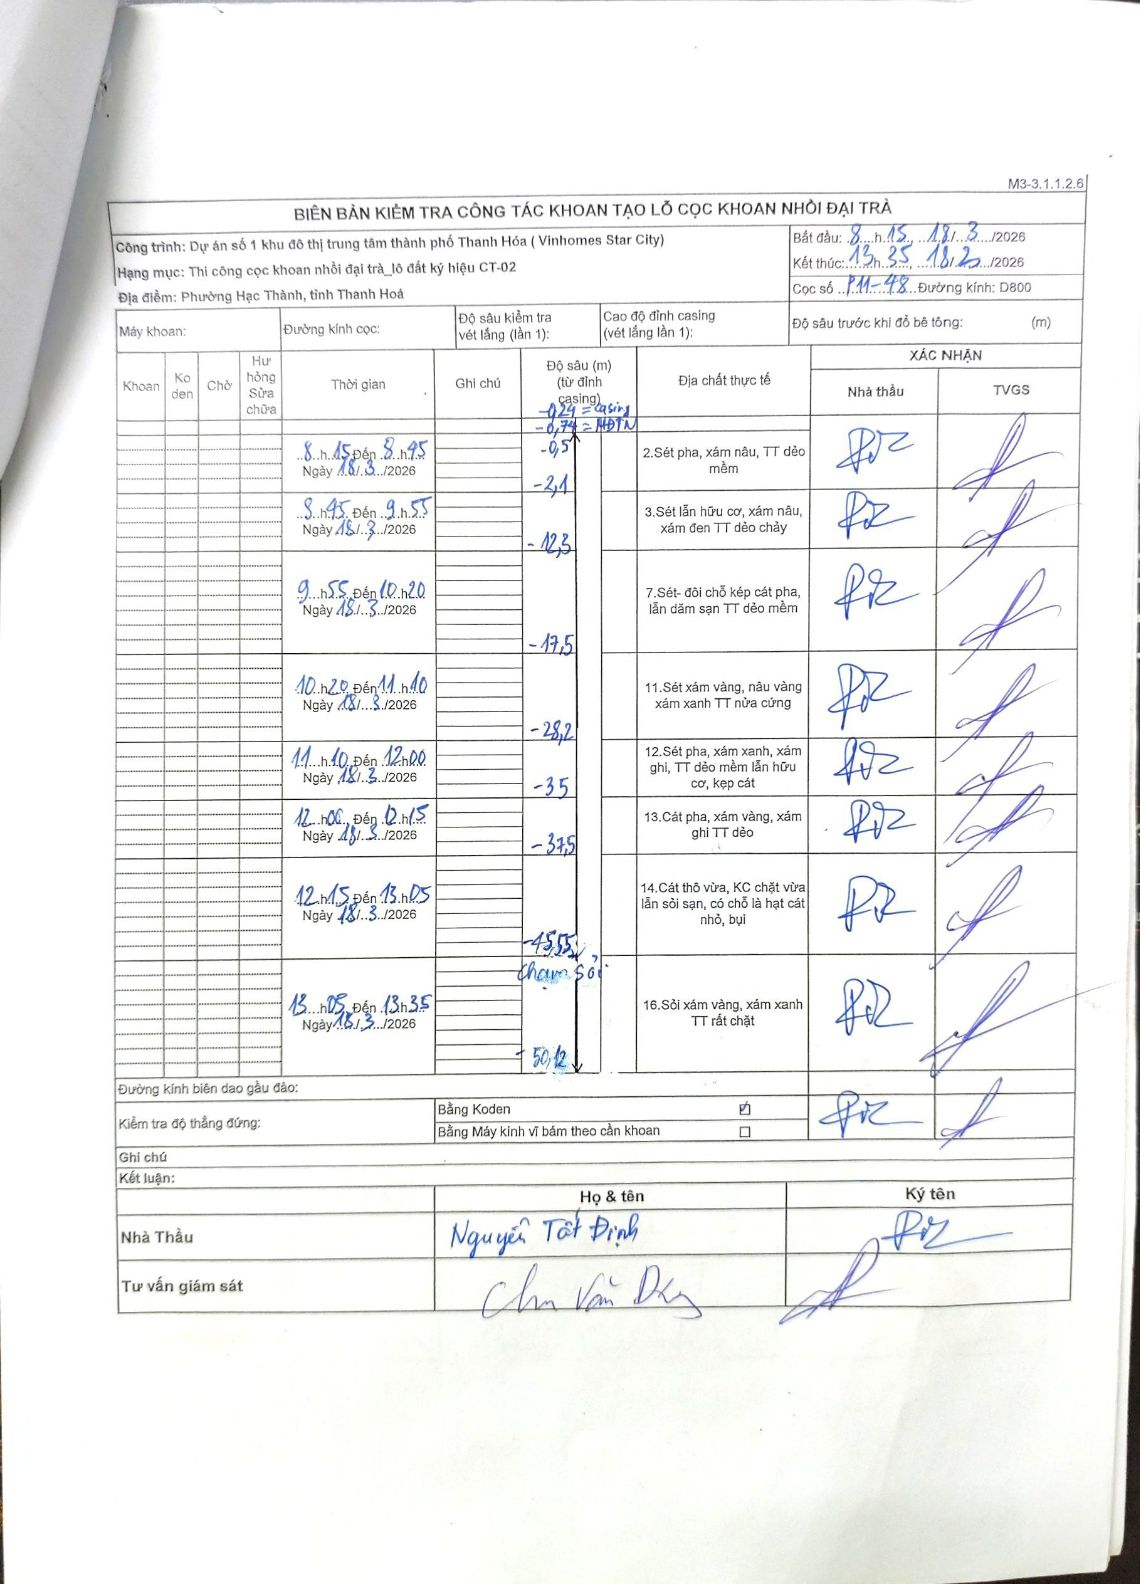 M3-3.1.1.2.6
BIÊN BẢN KIỂM TRA CÔNG TÁC KHOAN TẠO LỖ CỌC KHOAN NHỒI ĐẠI TRÀ
Công trình: Dự án số 1 khu đô thị trung tâm thành phố Thanh Hóa ( Vinhomes Star City)
Hạng mục: Thi công cọc khoan nhồi đại trà_lô đất ký hiệu CT-02
Địa điểm: Phường Hạc Thành, tỉnh Thanh Hoá
Bắt đầu: 8 h 15, 18/ 3 /2026
Kết thúc: 13h 35, 18/ 3 /2026
Cọc số P11-48 Đường kính: D800
Máy khoan:
Đường kính cọc:
Độ sâu kiểm tra
vét lắng (lần 1):
Cao độ đỉnh casing
(vét lắng lần 1):
Độ sâu trước khi đổ bê tông: (m)
Khoan
Ko
den
Chờ
Hư
hỏng
Sửa
chữa
Thời gian
Ghi chú
Độ sâu (m)
(từ đỉnh
casing)
Địa chất thực tế
XÁC NHẬN
Nhà thầu
TVGS
-0,24 = casing
-0,74 = MĐTN
-0,5
8 h 15 Đến 8 h 45
Ngày 18/ 3 /2026
-2,1
2.Sét pha, xám nâu, TT dẻo
mềm
8 h 45 Đến 9 h 55
Ngày 18/ 3 /2026
-12,3
3.Sét lẫn hữu cơ, xám nâu,
xám đen TT dẻo chảy
9 h55 Đến 10h20
Ngày 18/ 3 /2026
-17,5
7.Sét- đôi chỗ kép cát pha,
lẫn dăm sạn TT dẻo mềm
10 h20 Đến 11 h 10
Ngày 18/ 3 /2026
-28,2
11.Sét xám vàng, nâu vàng
xám xanh TT nửa cứng
11 h 10 Đến 12h00
Ngày 18/ 3 /2026
-35
12.Sét pha, xám xanh, xám
ghi, TT dẻo mềm lẫn hữu
cơ, kẹp cát
12 h00 Đến 12h15
Ngày 18/ 3 /2026
-37,5
13.Cát pha, xám vàng, xám
ghi TT dẻo
12 h 15 Đến 13h05
Ngày 18/ 3 /2026
-45,55
14.Cát thô vừa, KC chặt vừa
lẫn sỏi sạn, có chỗ là hạt cát
nhỏ, bụi
chạm sỏi
13 h05 Đến 13h35
Ngày 18/ 3 /2026
- 50,12
16.Sỏi xám vàng, xám xanh
TT rất chặt
Đường kính biên dao gầu đào:
Kiểm tra độ thẳng đứng:
Bằng Koden ☑
Bằng Máy kinh vĩ bám theo cần khoan ☐
Ghi chú
Kết luận:
Họ & tên
Ký tên
Nhà Thầu
Nguyễn Tất Định
Tư vấn giám sát
Chu Văn